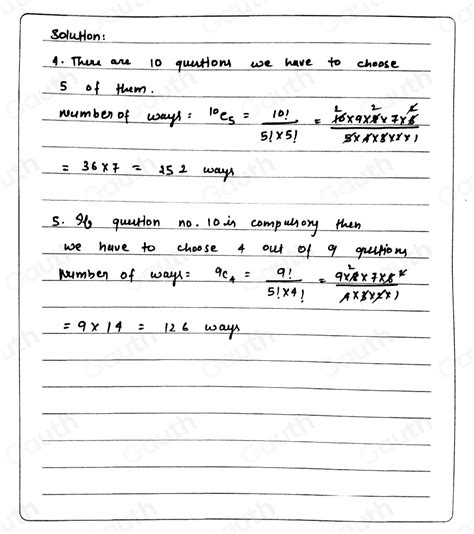 Solution:
4. There are 10 questions we have to choose
5 of them.
Number of ways = ¹⁰C₅ = 10! / 5! × 5! = 10×9×8×7×6 / 5×4×3×2×1
= 36×7 = 252 ways
5. If question no. 10 is compulsory then
we have to choose 4 out of 9 questions
Number of ways = 9C₄ = 9! / 5! × 4! = 9×8×7×6 / 4×3×2×1
= 9 × 14 = 126 ways